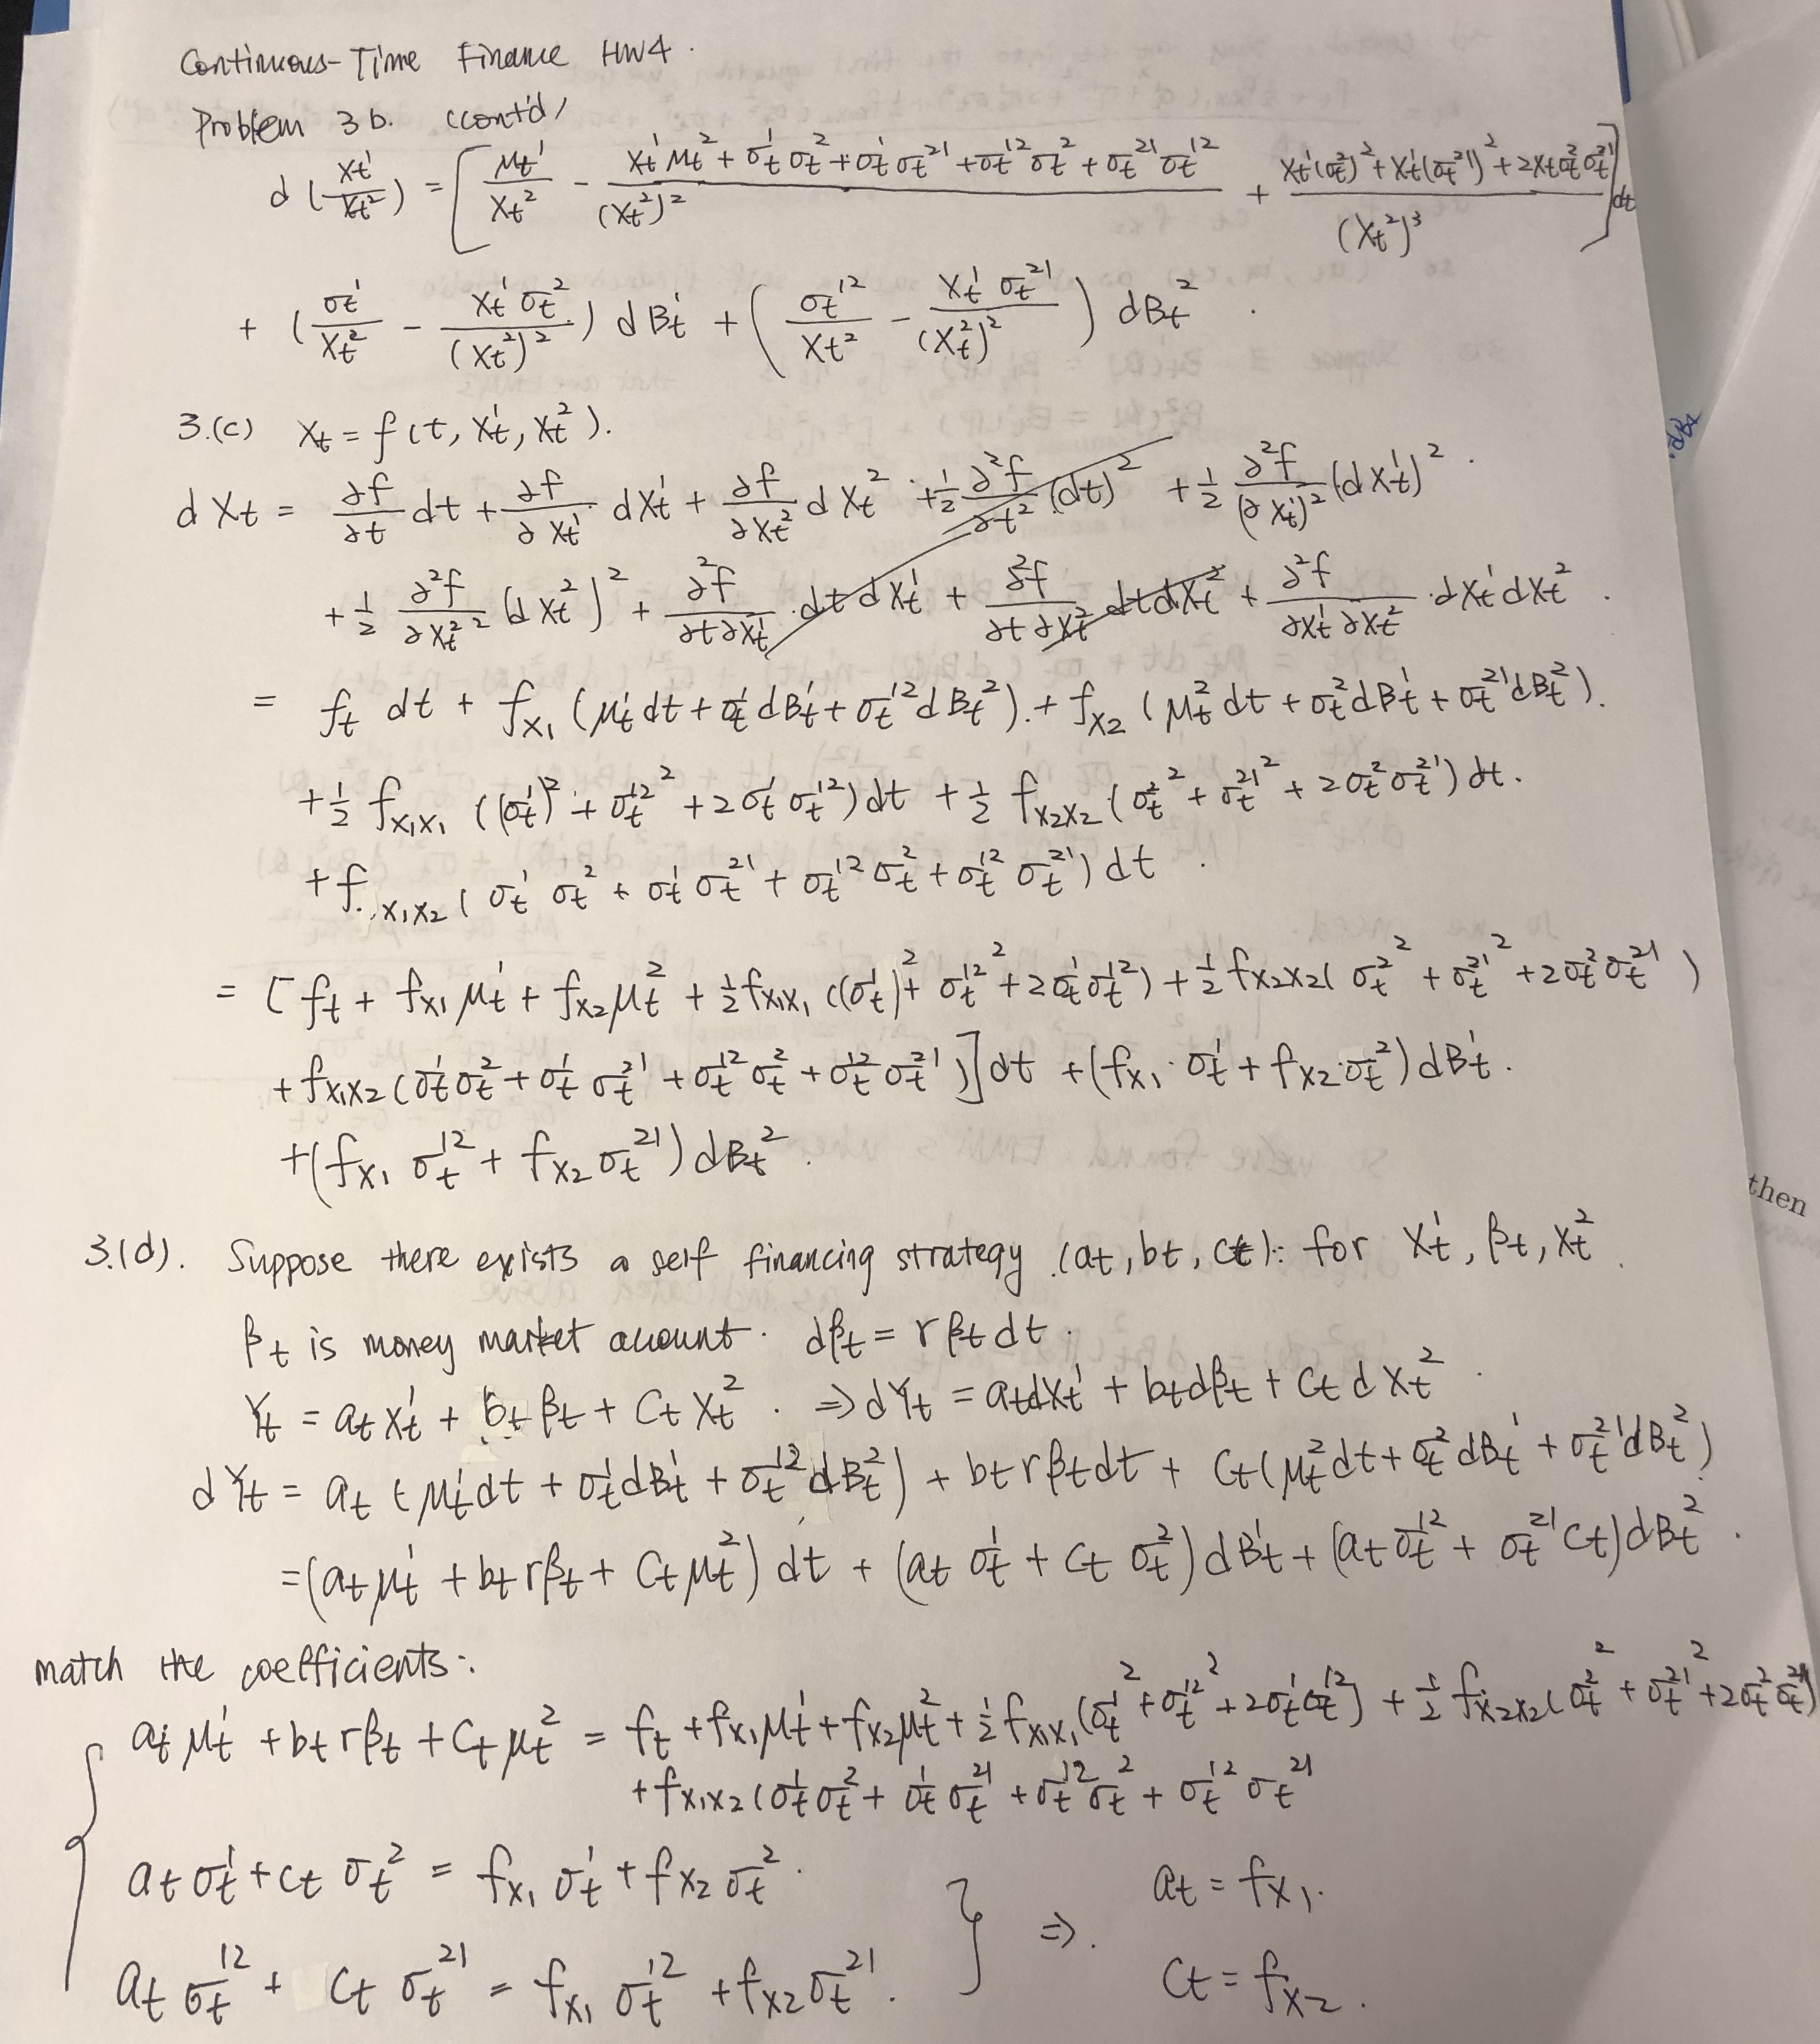 Continuous-Time Finance HW4.
Problem 3b. (cont'd)
d(X_t^1/X_t^2) = [μ_t^1/X_t^2 - (X_t^1 μ_t^2 + σ_t^1 σ_t^2 + σ_t^1 σ_t^21 + σ_t^12 σ_t^2 + σ_t^21 σ_t^12)/(X_t^2)^2 + (X_t^1(σ_t^2)^2 + X_t^1(σ_t^21)^2 + 2X_t σ_t^2 σ_t^21)/(X_t^2)^3] dt
+ (σ_t^1/X_t^2 - X_t^1 σ_t^2/(X_t^2)^2) dB_t^1 + (σ_t^12/X_t^2 - X_t^1 σ_t^21/(X_t^2)^2) dB_t^2.
3.(c) X_t = f(t, X_t^1, X_t^2).
dX_t = ∂f/∂t dt + ∂f/∂X_t^1 dX_t^1 + ∂f/∂X_t^2 dX_t^2 + 1/2 ∂^2f/∂t^2 (dt)^2 + 1/2 ∂^2f/(∂X_t^1)^2 (dX_t^1)^2.
+ 1/2 ∂^2f/∂X_t^2^2 (dX_t^2)^2 + ∂^2f/∂t∂X_t^1 · dt dX_t^1 + ∂^2f/∂t∂X_t^2 dt dX_t^2 + ∂^2f/∂X_t^1∂X_t^2 · dX_t^1 dX_t^2.
= f_t dt + f_x1 (μ_t^1 dt + σ_t^1 dB_t^1 + σ_t^12 dB_t^2) + f_x2 (μ_t^2 dt + σ_t^2 dB_t^1 + σ_t^21 dB_t^2).
+ 1/2 f_x1x1 ((σ_t^1)^2 + σ_t^12^2 + 2σ_t^1 σ_t^12) dt + 1/2 f_x2x2 (σ_t^2^2 + σ_t^21^2 + 2σ_t^2 σ_t^21) dt.
+ f_x1x2 (σ_t^1 σ_t^2 + σ_t^1 σ_t^21 + σ_t^12 σ_t^2 + σ_t^12 σ_t^21) dt.
= [f_t + f_x1 μ_t^1 + f_x2 μ_t^2 + 1/2 f_x1x1 ((σ_t^1)^2 + σ_t^12^2 + 2σ_t^1 σ_t^12) + 1/2 f_x2x2 (σ_t^2^2 + σ_t^21^2 + 2σ_t^2 σ_t^21)
+ f_x1x2 (σ_t^1 σ_t^2 + σ_t^1 σ_t^21 + σ_t^12 σ_t^2 + σ_t^12 σ_t^21)] dt + (f_x1 · σ_t^1 + f_x2 · σ_t^2) dB_t^1.
+ (f_x1 σ_t^12 + f_x2 σ_t^21) dB_t^2.
3.(d). Suppose there exists a self financing strategy (a_t, b_t, c_t): for X_t^1, β_t, X_t^2.
β_t is money market account. dβ_t = r β_t dt.
Y_t = a_t X_t^1 + b_t β_t + c_t X_t^2. ⇒ dY_t = a_t dX_t^1 + b_t dβ_t + c_t dX_t^2.
dY_t = a_t (μ_t^1 dt + σ_t^1 dB_t^1 + σ_t^12 dB_t^2) + b_t r β_t dt + c_t (μ_t^2 dt + σ_t^2 dB_t^1 + σ_t^21 dB_t^2)
= (a_t μ_t^1 + b_t r β_t + c_t μ_t^2) dt + (a_t σ_t^1 + c_t σ_t^2) dB_t^1 + (a_t σ_t^12 + σ_t^21 c_t) dB_t^2.
match the coefficients:
a_t μ_t^1 + b_t r β_t + c_t μ_t^2 = f_t + f_x1 μ_t^1 + f_x2 μ_t^2 + 1/2 f_x1x1 (σ_t^1^2 + σ_t^12^2 + 2σ_t^1 σ_t^12) + 1/2 f_x2x2 (σ_t^2^2 + σ_t^21^2 + 2σ_t^2 σ_t^21)
+ f_x1x2 (σ_t^1 σ_t^2 + σ_t^1 σ_t^21 + σ_t^12 σ_t^2 + σ_t^12 σ_t^21
a_t σ_t^1 + c_t σ_t^2 = f_x1 σ_t^1 + f_x2 σ_t^2.
a_t σ_t^12 + c_t σ_t^21 = f_x1 σ_t^12 + f_x2 σ_t^21.
⇒. a_t = f_x1.
c_t = f_x2.
then
dBt